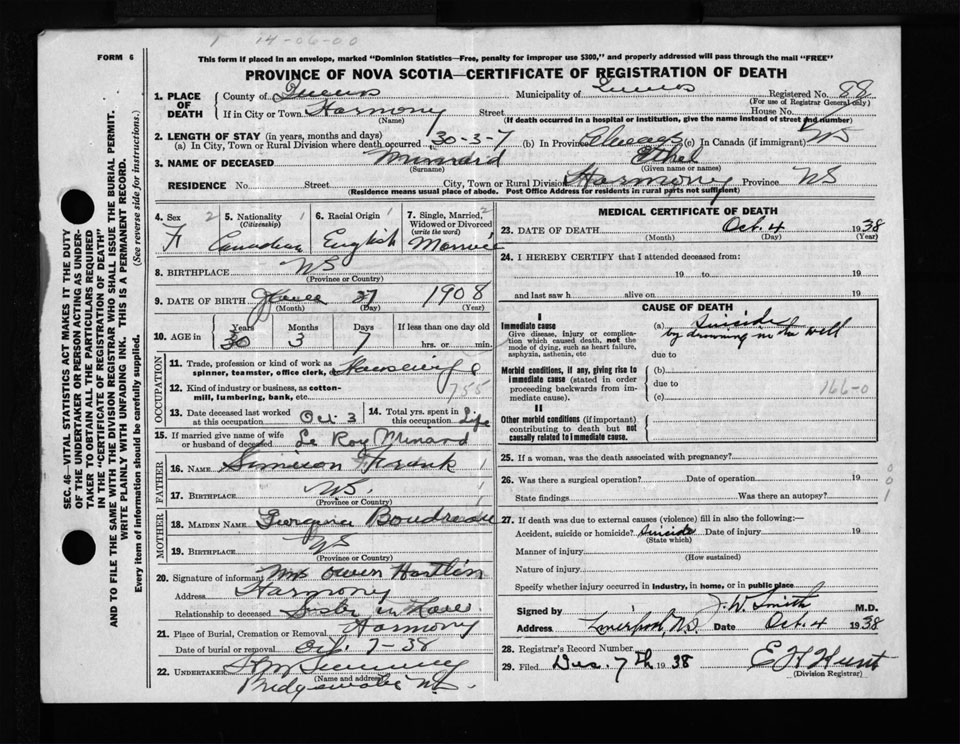 14-06-00
FORM 6
This form if placed in an envelope, marked "Dominion Statistics—Free, penalty for improper use $300," and properly addressed will pass through the mail "FREE"
PROVINCE OF NOVA SCOTIA—CERTIFICATE OF REGISTRATION OF DEATH
1. PLACE OF DEATH
County of Queens Municipality of Queens Registered No. 88
(For use of Registrar General only)
If in City or Town Harmony Street House No.
(Name) (If death occurred in a hospital or institution, give the name instead of street and number)
2. LENGTH OF STAY (in years, months and days)
(a) In City, Town or Rural Division where death occurred 30-3-7 (b) In Province Always (c) In Canada (if immigrant) NS
3. NAME OF DECEASED Minard Ethel
(Surname) (Given name or names)
RESIDENCE No. Street City, Town or Rural Division Harmony Province NS
(Residence means usual place of abode. Post Office Address for residents in rural parts not sufficient)
4. Sex 2 5. Nationality 1 6. Racial Origin 1 7. Single, Married, 2
(Citizenship) Widowed or Divorced
(write the word)
F Canadian English Married
8. BIRTHPLACE NS
(Province or Country)
9. DATE OF BIRTH June 27 1908
(Month) (Day) (Year)
10. AGE in Years Months Days If less than one day old
30 3 7 hrs. or min.
OCCUPATION
11. Trade, profession or kind of work as Housewife
spinner, teamster, office clerk, etc.
12. Kind of industry or business, as cotton- 755
mill, lumbering, bank, etc.
13. Date deceased last worked at this occupation Oct. 3 14. Total yrs. spent in this occupation Life
15. If married give name of wife or husband of deceased Le Roy Minard
FATHER
16. NAME Simeon Frank
17. BIRTHPLACE NS
(Province or Country)
MOTHER
18. MAIDEN NAME Georgina Boudreau
19. BIRTHPLACE NS
(Province or Country)
20. Signature of informant Mrs Owen Hartlin
Address Harmony
Relationship to deceased Sister in Law
21. Place of Burial, Cremation or Removal Harmony
Date of burial or removal Oct. 7-38
22. UNDERTAKER
(Name and address)
Bridgewater NS.
MEDICAL CERTIFICATE OF DEATH
23. DATE OF DEATH Oct. 4 1938
(Month) (Day) (Year)
24. I HEREBY CERTIFY that I attended deceased from:
19 to 19
and last saw h alive on 19
CAUSE OF DEATH
I
Immediate cause (a) Suicide
Give disease, injury or complication which caused death, not the mode of dying, such as heart failure, asphyxia, asthenia, etc
by drowning in the well
due to
Morbid conditions, if any, giving rise to immediate cause (stated in order proceeding backwards from immediate cause). (b)
due to 166-0
(c)
II
Other morbid conditions (if important) contributing to death but not causally related to immediate cause.
25. If a woman, was the death associated with pregnancy?
26. Was there a surgical operation? Date of operation 19
State findings Was there an autopsy?
0
0
1
27. If death was due to external causes (violence) fill in also the following:—
Accident, suicide or homicide? Suicide Date of injury 19
(State which)
Manner of injury
(How sustained)
Nature of injury
Specify whether injury occurred in industry, in home, or in public place
Signed by J. W. Smith M.D.
Address Liverpool, N.S. Date Oct. 4 1938
28. Registrar's Record Number
29. Filed Dec. 7th 1938 E H Hunt
(Division Registrar)
SEC. 46—VITAL STATISTICS ACT MAKES IT THE DUTY
OF THE UNDERTAKER OR PERSON ACTING AS UNDER-
TAKER TO OBTAIN ALL THE PARTICULARS REQUIRED
IN THE "CERTIFICATE OF REGISTRATION OF DEATH"
AND TO FILE THE SAME WITH THE DIVISION REGISTRAR WHO SHALL ISSUE THE BURIAL PERMIT.
WRITE PLAINLY WITH UNFADING INK. THIS IS A PERMANENT RECORD.
Every item of information should be carefully supplied. (See reverse side for instructions.)